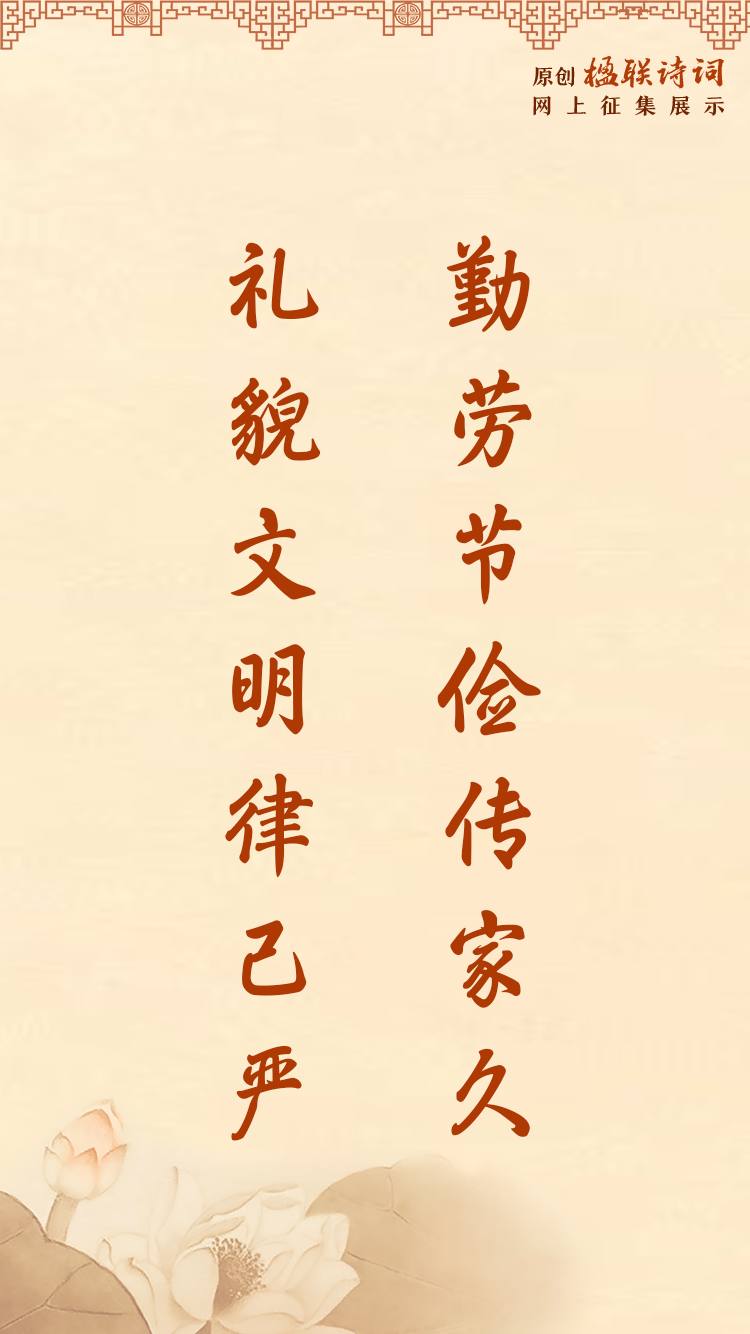 原创 楹联诗词
网上征集展示
勤劳节俭传家久
礼貌文明律己严